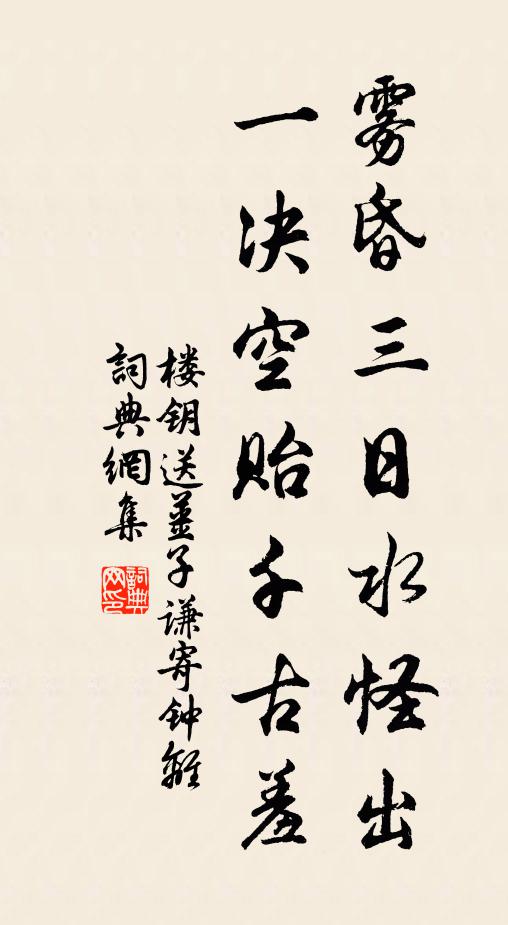 雾昏三日水怪出
一决空贻千古羞
楼钥送姜子谦寄钟離
詞典網集
詞典
网印